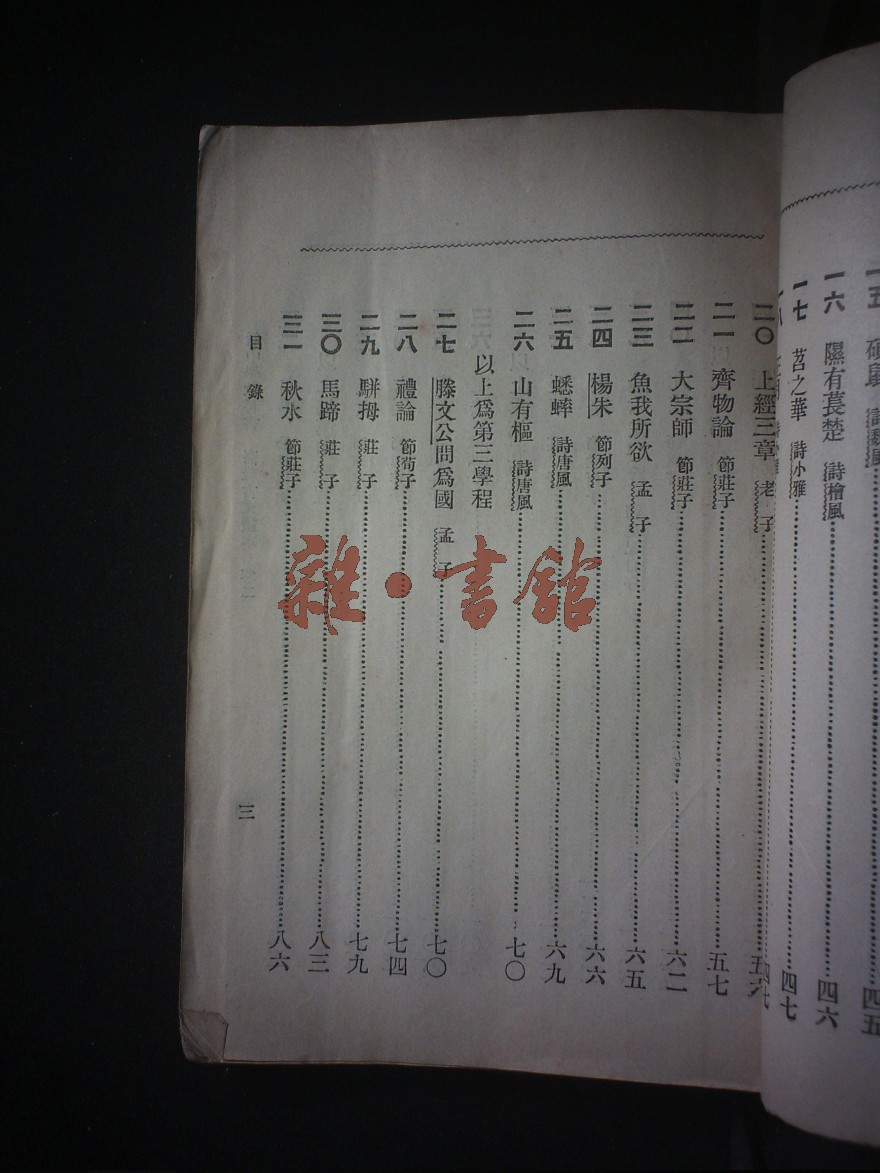 碩鼠 詩魏風 四五
一六 隰有萇楚 詩檜風 四六
一七 苕之華 詩小雅 四七
二〇 上經三章 老子 五六
二一 齊物論 節莊子 五七
二二 大宗師 節莊子 六二
二三 魚我所欲 孟子 六五
二四 楊朱 節列子 六六
二五 蟋蟀 詩唐風 六九
二六 山有樞 詩唐風 七〇
以上爲第三學程
二七 滕文公問爲國 孟子 七〇
二八 禮論 節荀子 七四
二九 駢拇 莊子 七九
三〇 馬蹄 莊子 八三
三一 秋水 節莊子 八六
目錄 三
雜·書館